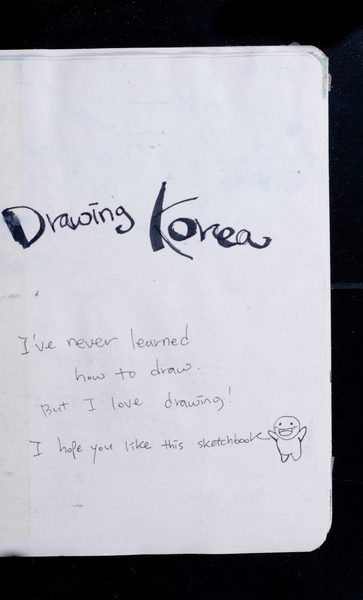 Drawing Korea
I've never learned
how to draw.
But I love drawing!
I hope you like this sketchbook